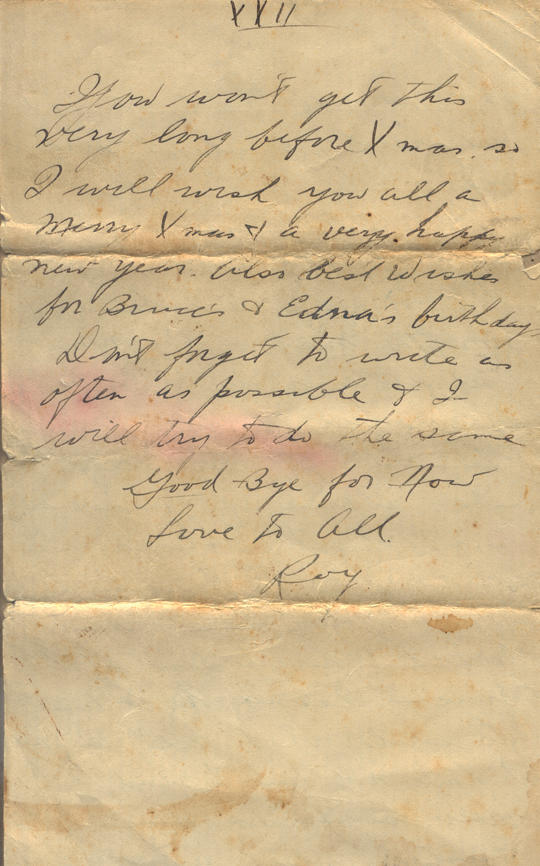 XXII
You won't get this
very long before Xmas. so
I will wish you all a
Merry Xmas & a very happy
new year. Also best wishes
for Bruce's & Edna's birthday
Don't forget to write as
often as possible & I
will try to do the same
Good Bye for Now
Love to All.
Roy